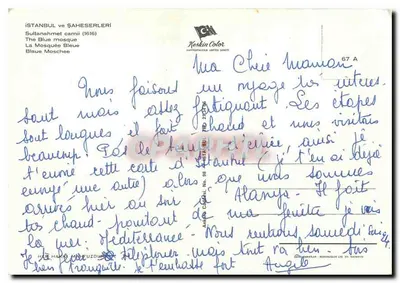 İSTANBUL ve ŞAHESERLERİ
Sultanahmet camii (1616)
The Blue mosque
La Mosquée Bleue
Bleue Moschee
Keskin Color
67 A
Ma Chère Maman
Nous faisons un voyage très intéres-
sant mais assez fatiguant. Les étapes
sont longues il fait chaud et nous visitons
beaucoup. Pas le temps d'écrire, aussi je
t'envoie cette carte d'Istanbul (je t'en ai déjà
envoyé une autre) alors que nous sommes
arrivés hier au soir Alanya. Il fait
très chaud - pourtant de ma fenêtre je vois
la mer Méditerranée. Nous rentrons samedi
téléphoner mais tout va bien - sois
bien tranquille. Je t'embrasse fort